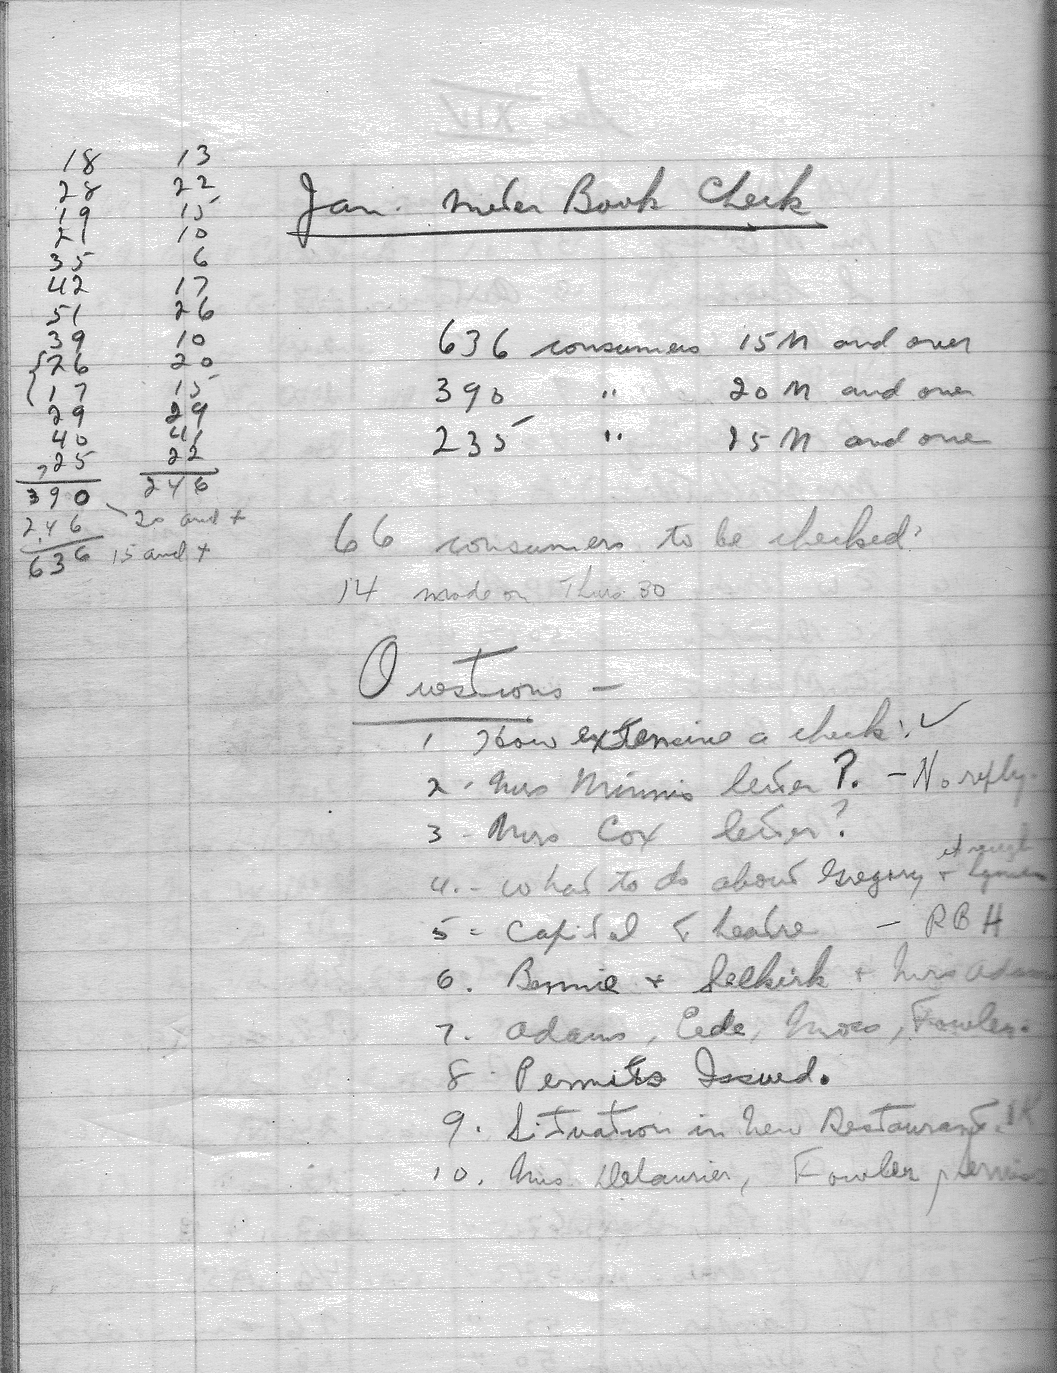 18 13
28 22
19 15
21 10
35 6
42 17
51 26
39 10
26 20
17 15
29 29
40 41
25 22
390 246
246 20 and +
636 15 and +
Jan. Meter Book Check
636 consumers 15 M and over
390 " 20 M and over
235 " 25 M and over
66 consumers to be checked
14 made on Thurs 30
Questions -
1 How extensive a check? ✓
2 - Mrs Minnis letter ?. - No reply.
3 - Mrs Cox letter?
4. - What to do about Gregory +
5 - Capital Theatre - RBH
6. Bennie + Selkirk + Mrs Adams
7. Adams, Eede, Moss, Fowler.
8 - Permits Issued.
9. Situation in New Restaurant.
10. Mrs Delaurier, Fowler,